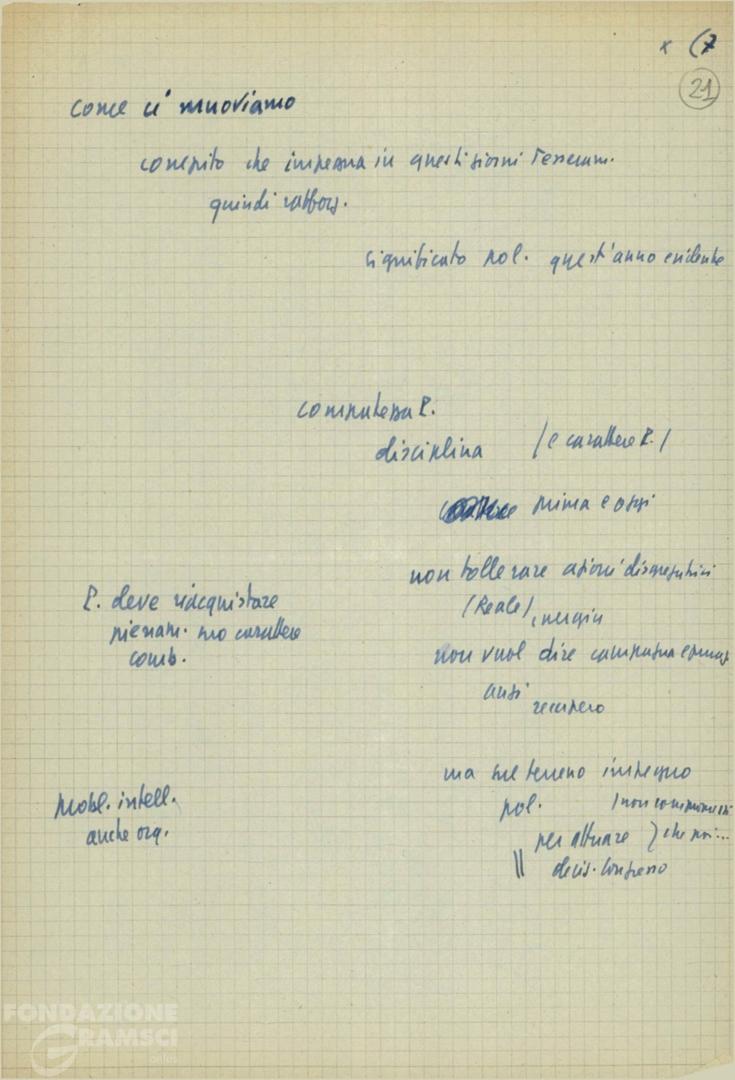 x (7
21
come ci muoviamo
compito che impegna in questi giorni Tesseram.
quindi rafforz.
significato pol. quest'anno evidente
compattezza P.
disciplina / e carattere P. /
prima e oggi
non tollerare azioni disgregatrici
(Reale) energia
P. deve riacquistare
pienam. suo carattere
comb.
non vuol dire campagna
anzi recupero
ma sul terreno impegno
pol. / non compromessi
Probl. intell.
anche org.
per attuare } che poi...
decis. Congresso
FONDAZIONE
GRAMSCI